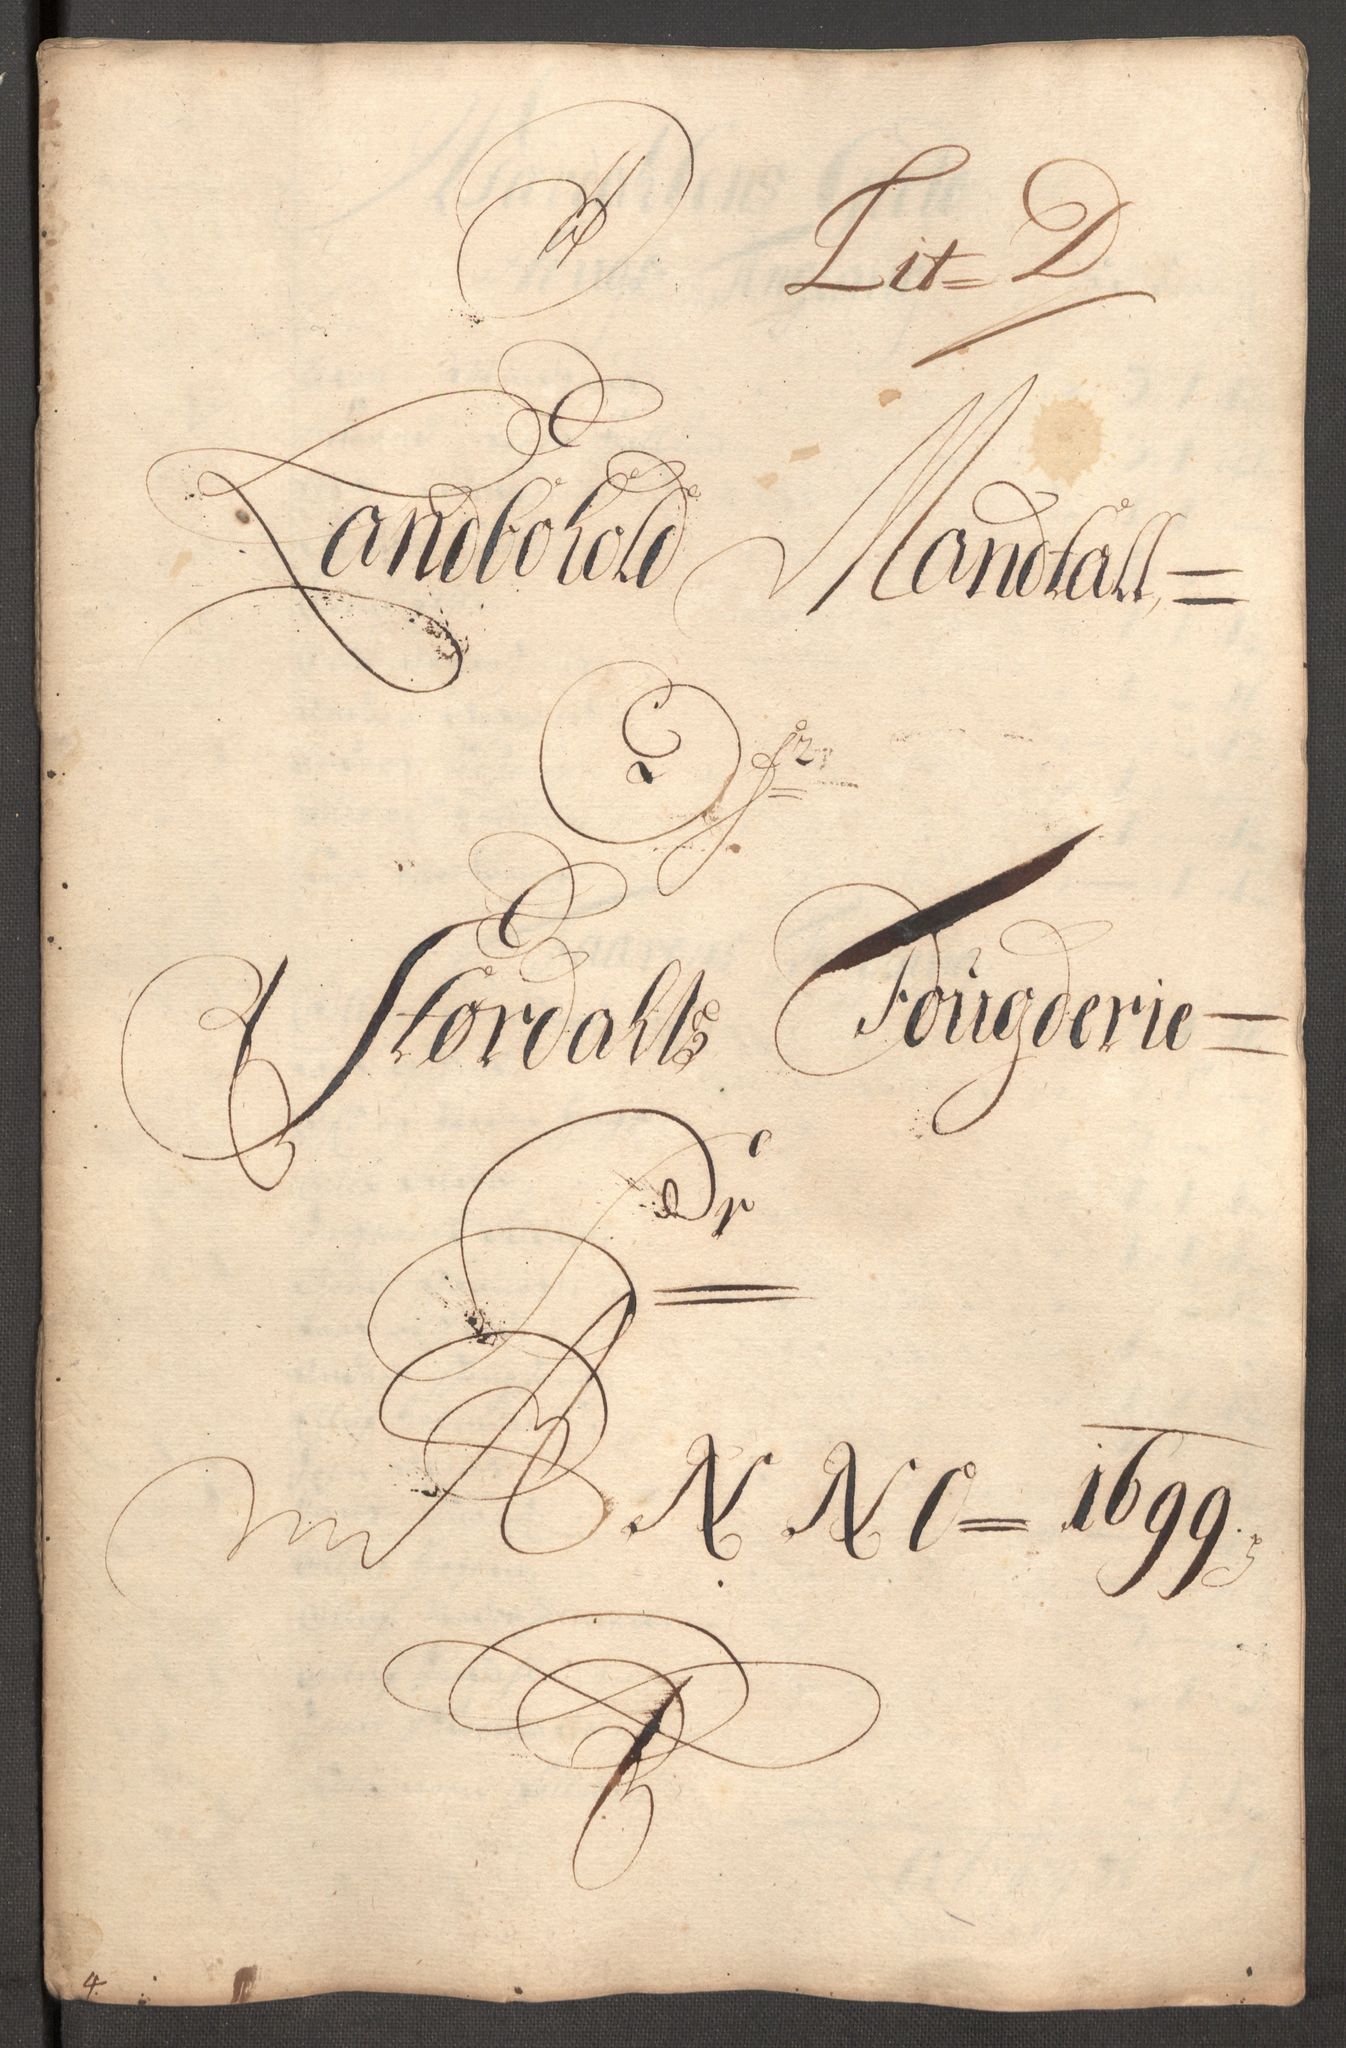 Lit= D
Landbohold Mandtall,=
Ofr
Størdahls Fougderie=
Pr
ANNO= 1699.
4